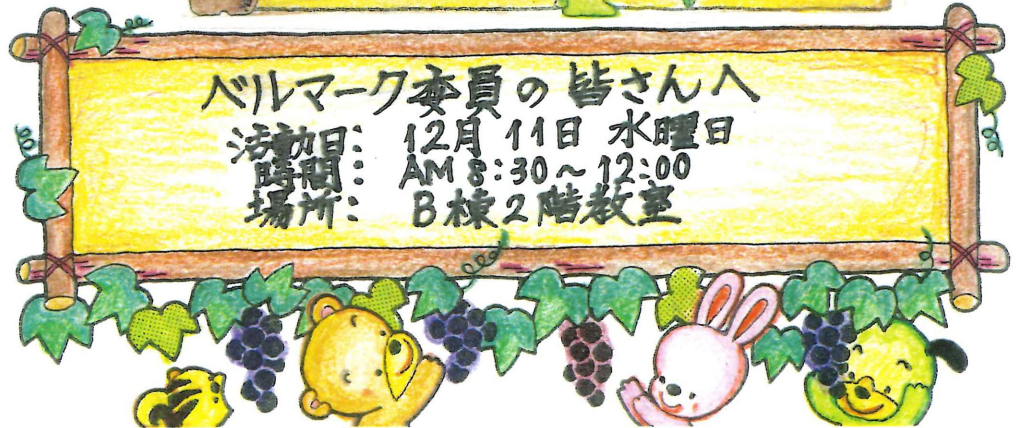 ベルマーク委員の皆さんへ
活動日: 12月11日 水曜日
時間: AM 8:30~12:00
場所: B棟2階教室